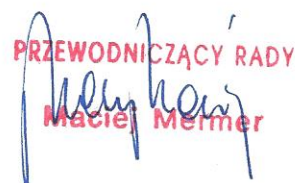 PRZEWODNICZĄCY RADY
Maciej Mermer